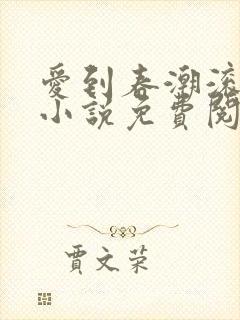 愛到春潮滾
小說免費閱
賈文榮